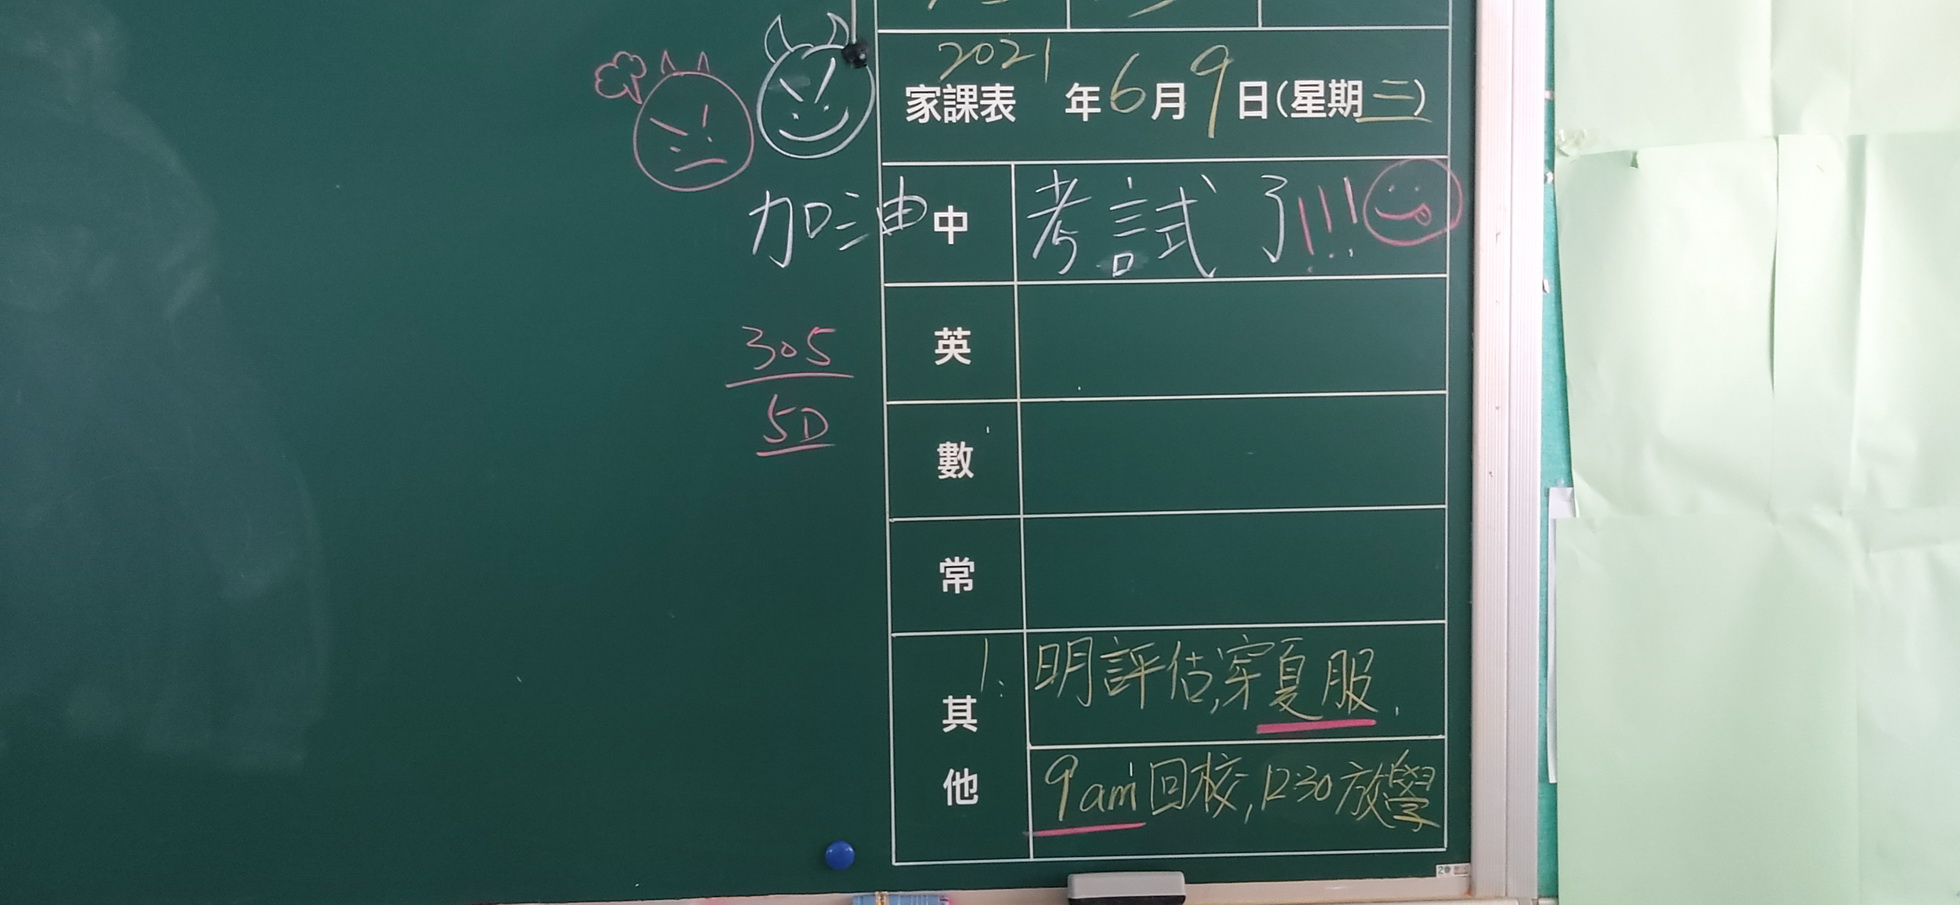 家課表 2021年6月9日(星期三)
加油
中 考試了!!!
305
5D
英
數
常
其他
1. 明評估,穿夏服.
9am回校,12:30放學